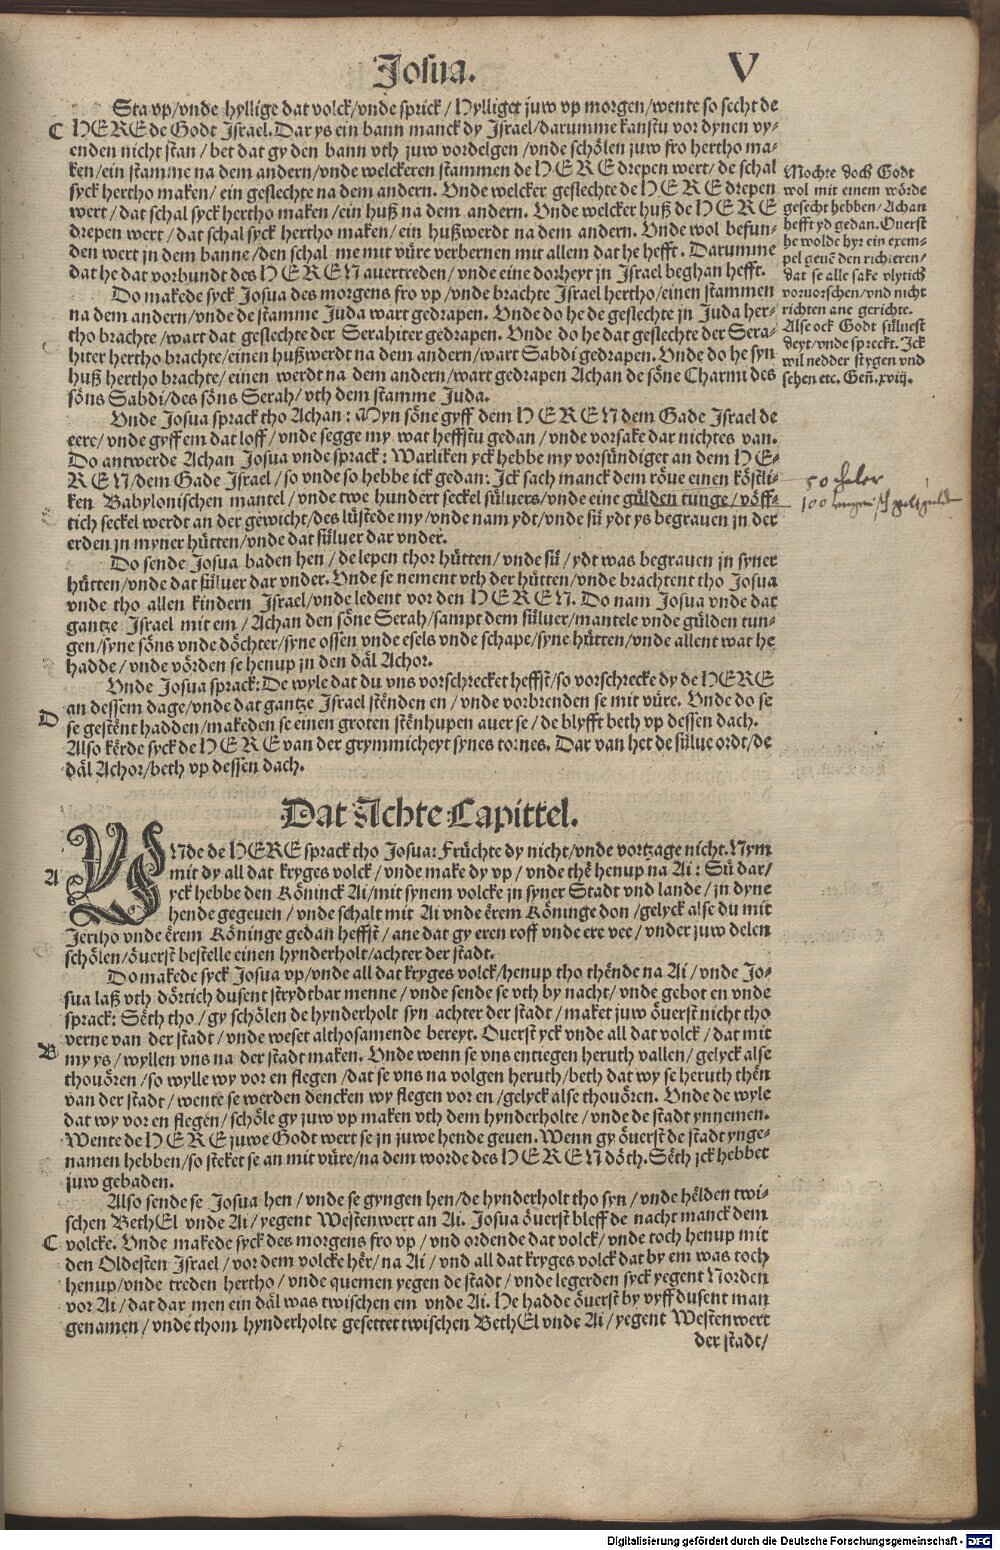 Josua. V
Sta vp/vnde hyllige dat volck/vnde sprick/Hylliget juw vp morgen/wente so secht de
C HERE de Godt Israel. Dar ys ein bann manck dy Israel/darumme kanstu vor dynen vy-
enden nicht stan/bet dat gy den bann vth juw vordelgen/vnde schölen juw fro hertho ma-
ken/ein stamme na dem andern/vnde welckeren stammen de HERE drepen wert/de schal
syck hertho maken/ein geslechte na dem andern. Vnde welcker geslechte de HERE drepen
wert/dat schal syck hertho maken/ein huß na dem andern. Vnde welcker huß de HERE
drepen wert/dat schal syck hertho maken/ein hußwerdt na dem andern. Vnde wol befun-
den wert jn dem banne/den schal me mit vüre verbernen mit allem dat he hefft. Darumme
dat he dat vorbundt des HEREN auertreden/vnde eine dorheyt jn Israel beghan hefft.
Do makede syck Josua des morgens fro vp/vnde brachte Israel hertho/einen stammen
na dem andern/vnde de stamme Juda wart gedrapen. Vnde do he de geslechte jn Juda her-
tho brachte/wart dat geslechte der Serahiter gedrapen. Vnde do he dat geslechte der Sera-
hiter hertho brachte/einen hußwerdt na dem andern/wart Sabdi gedrapen. Vnde do he syn
huß hertho brachte/einen werdt na dem andern/wart gedrapen Achan de söne Charmi des
söns Sabdi/des söns Serah/vth dem stamme Juda.
Mochte doch Godt
wol mit einem wörde
gesecht hebben/Achan
hefft yd gedan. Ouerst
he wolde hyr ein exem-
pel geuē den richteren/
dat se alle sake vlytich
voruorschen/vnd nicht
richten ane gerichte.
Alse ock Godt sülvest
deyt/vnde spreckt. Ick
wil nedder stygen vnd
sehen etc. Geñ. xviij.
Vnde Josua sprack tho Achan: Myn söne gyff dem HEREN dem Gade Israel de
eere/vnde gyff em dat loff/vnde segge my wat heffstu gedan/vnde vorsake dar nichtes van.
Do antwerde Achan Josua vnde sprack: Warliken yck hebbe my vorsündiget an dem HE-
REN/dem Gade Israel/so vnde so hebbe ick gedan: Ick sach manck dem röue einen köstli-
ken Babylonischen mantel/vnde twe hundert seckel süluers/vnde eine gülden tunge/vöff-
tich seckel werdt an der gewicht/des lüstede my/vnde nam ydt/vnde sü ydt ys begrauen jn der
erden jn myner hütten/vnde dat süluer dar vnder.
50
100
Do sende Josua baden hen/de lepen thor hütten/vnde sü/ydt was begrauen jn syner
hütten/vnde dat süluer dar vnder. Vnde se nement vth der hütten/vnde brachtent tho Josua
vnde tho allen kindern Israel/vnde ledent vor den HEREN. Do nam Josua vnde dat
gantze Israel mit em/Achan den söne Serah/sampt dem süluer/mantele vnde gülden tun-
gen/syne söns vnde döchter/syne ossen vnde esels vnde schape/syne hütten/vnde allent wat he
hadde/vnde vörden se henup jn den däl Achor.
Vnde Josua sprack: De wyle dat du vns vorschrecket heffst/so vorschrecke dy de HERE
an dessem dage/vnde dat gantze Israel stēnden en/vnde vorbrenden se mit vüre. Vnde do se
D se gestēnt hadden/makeden se einen groten stēnhupen auer se/de blyfft beth vp dessen dach.
Also kērde syck de HERE van der grymmicheyt synes tornes. Dar van het de sülue ordt/de
däl Achor/beth vp dessen dach.
Dat Achte Capittel.
A VNde de HERE sprack tho Josua: Früchte dy nicht/vnde vortzage nicht. Nym
mit dy all dat kryges volck/vnde make dy vp/vnde thē henup na Ai: Sü dar/
yck hebbe den Köninck Ai/mit synem volcke jn syner Stadt vnd lande/jn dyne
hende gegeuen/vnde schalt mit Ai vnde ērem Köninge don/gelyck alse du mit
Jeriho vnde ērem Köninge gedan heffst/ane dat gy eren roff vnde ere vee/vnder juw delen
schölen/öuerst bestelle einen hynderholt/achter der stadt.
Do makede syck Josua vp/vnde all dat kryges volck/henup tho thēnde na Ai/vnde Jo-
sua laß vth dörtich dusent strydtbar menne/vnde sende se vth by nacht/vnde gebot en vnde
sprack: Sēth tho/gy schölen de hynderholt syn achter der stadt/maket juw öuerst nicht tho
verne van der stadt/vnde weset althosamende bereyt. Ouerst yck vnde all dat volck/dat mit
B my ys/wyllen vns na der stadt maken. Vnde wenn se vns entiegen heruth vallen/gelyck alse
thouören/so wylle wy vor en flegen/dat se vns na volgen heruth/beth dat wy se heruth thēn
van der stadt/wente se werden dencken wy flegen vor en/gelyck alse thouören. Vnde de wyle
dat wy vor en flegen/schöle gy juw vp maken vth dem hynderholte/vnde de stadt ynnemen.
Wente de HERE juwe Godt wert se jn juwe hende geuen. Wenn gy öuerst de stadt ynge-
namen hebben/so steket se an mit vüre/na dem worde des HEREN döth. Sēth jck hebbet
juw gebaden.
Also sende se Josua hen/vnde se gyngen hen/de hynderholt tho syn/vnde hēlden twi-
schen BethEl vnde Ai/yegent Westenwert an Ai. Josua öuerst bleff de nacht manck dem
C volcke. Vnde makede syck des morgens fro vp/vnd ordende dat volck/vnde toch henup mit
den Oldesten Israel/vor dem volcke hēr/na Ai/vnd all dat kryges volck dat by em was toch
henup/vnde treden hertho/vnde quemen yegen de stadt/vnde legerden syck yegent Norden
vor Ai/dat dar men ein däl was twischen em vnde Ai. He hadde öuerst by vyff dusent man
genamen/vnde thom hynderholte gesettet twischen BethEl vnde Ai/yegent Westenwert
der stadt/
Digitalisierung gefördert durch die Deutsche Forschungsgemeinschaft - DFG